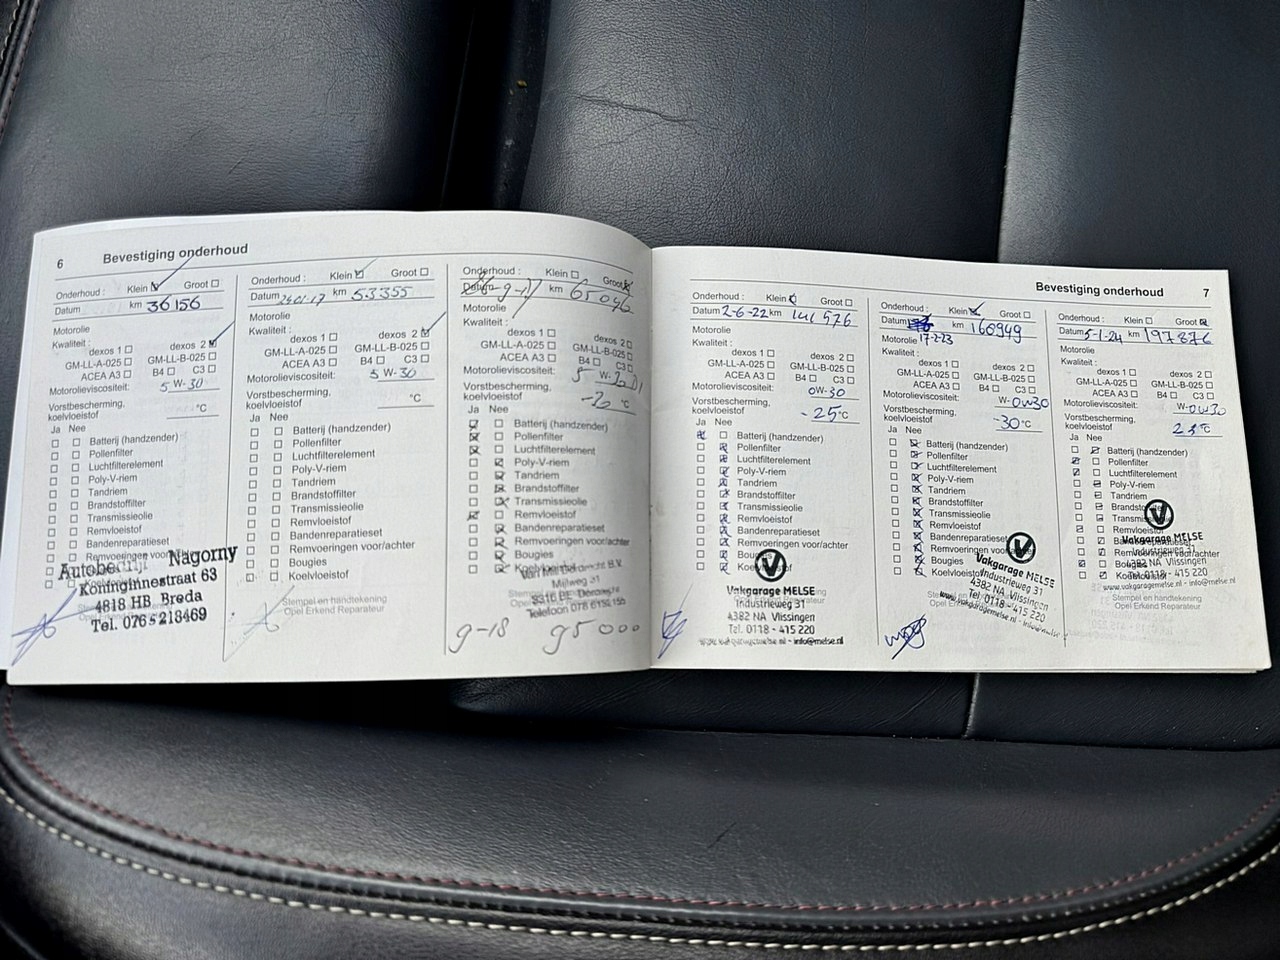 6 Bevestiging onderhoud
Onderhoud : Klein Groot
km 36156
Datum
Motorolie
Kwaliteit :
dexos 1 dexos 2
GM-LL-A-025 GM-LL-B-025
ACEA A3 B4 C3
Motorolieviscositeit:
5 W-30
Vorstbescherming,
koelvloeistof °C
Ja Nee
Batterij (handzender)
Pollenfilter
Luchtfilterelement
Poly-V-riem
Tandriem
Brandstoffilter
Transmissieolie
Remvloeistof
Bandenreparatieset
Remvoeringen
Nagorny
Koninginnestraat 63
4818 HB Breda
Tel. 076 5218469
Onderhoud : Klein Groot
Datum km 53355
Motorolie
Kwaliteit :
dexos 1 dexos 2
GM-LL-A-025 GM-LL-B-025
ACEA A3 B4 C3
Motorolieviscositeit: 5 W-30
Vorstbescherming,
koelvloeistof °C
Ja Nee
Batterij (handzender)
Pollenfilter
Luchtfilterelement
Poly-V-riem
Tandriem
Brandstoffilter
Transmissieolie
Remvloeistof
Bandenreparatieset
Remvoeringen voor/achter
Bougies
Koelvloeistof
Stempel en handtekening
Opel Erkend Reparateur
Onderhoud : Klein Groot
Datum km 65046
Motorolie
Kwaliteit :
dexos 1 dexos 2
GM-LL-A-025 GM-LL-B-025
ACEA A3 B4 C3
Motorolieviscositeit:
5 W-30
Vorstbescherming,
koelvloeistof -20 °C
Ja Nee
Batterij (handzender)
Pollenfilter
Luchtfilterelement
Poly-V-riem
Tandriem
Brandstoffilter
Transmissieolie
Remvloeistof
Bandenreparatieset
Remvoeringen voor/achter
Bougies
Koelvloeistof
9-18 95000
Bevestiging onderhoud 7
Onderhoud : Klein Groot
Datum 2-6-22 km 141576
Motorolie
Kwaliteit :
dexos 1 dexos 2
GM-LL-A-025 GM-LL-B-025
ACEA A3 B4 C3
Motorolieviscositeit:
0W-30
Vorstbescherming,
koelvloeistof -25 °C
Ja Nee
Batterij (handzender)
Pollenfilter
Luchtfilterelement
Poly-V-riem
Tandriem
Brandstoffilter
Transmissieolie
Remvloeistof
Bandenreparatieset
Remvoeringen voor/achter
Bougies
Vakgarage MELSE
Industrieweg 31
4382 NA Vlissingen
Tel. 0118 - 415 220
info@melse.nl
Onderhoud : Klein Groot
Datum km 160949
Motorolie 17-2-23
Kwaliteit :
dexos 1 dexos 2
GM-LL-A-025 GM-LL-B-025
ACEA A3 B4 C3
Motorolieviscositeit:
W-0W30
Vorstbescherming,
koelvloeistof -30 °C
Ja Nee
Batterij (handzender)
Pollenfilter
Luchtfilterelement
Poly-V-riem
Tandriem
Brandstoffilter
Transmissieolie
Remvloeistof
Bandenreparatieset
Remvoeringen
Bougies
Koelvloeistof
Vakgarage MELSE
Industrieweg 31
4382 NA Vlissingen
Tel. 0118 - 415 220
www.vakgaragemelse.nl
Onderhoud : Klein Groot
Datum 5-1-24 km 197876
Motorolie
Kwaliteit :
dexos 1 dexos 2
GM-LL-A-025 GM-LL-B-025
ACEA A3 B4 C3
Motorolieviscositeit:
W-0W30
Vorstbescherming,
koelvloeistof
Ja Nee
Batterij (handzender)
Pollenfilter
Luchtfilterelement
Poly-V-riem
Tandriem
Remvloeistof
Remvoeringen voor/achter
Vakgarage MELSE
Industrieweg 31
4382 NA Vlissingen
Tel. 0118 - 415 220
www.vakgaragemelse.nl - info@melse.nl
Stempel en handtekening
Opel Erkend Reparateur